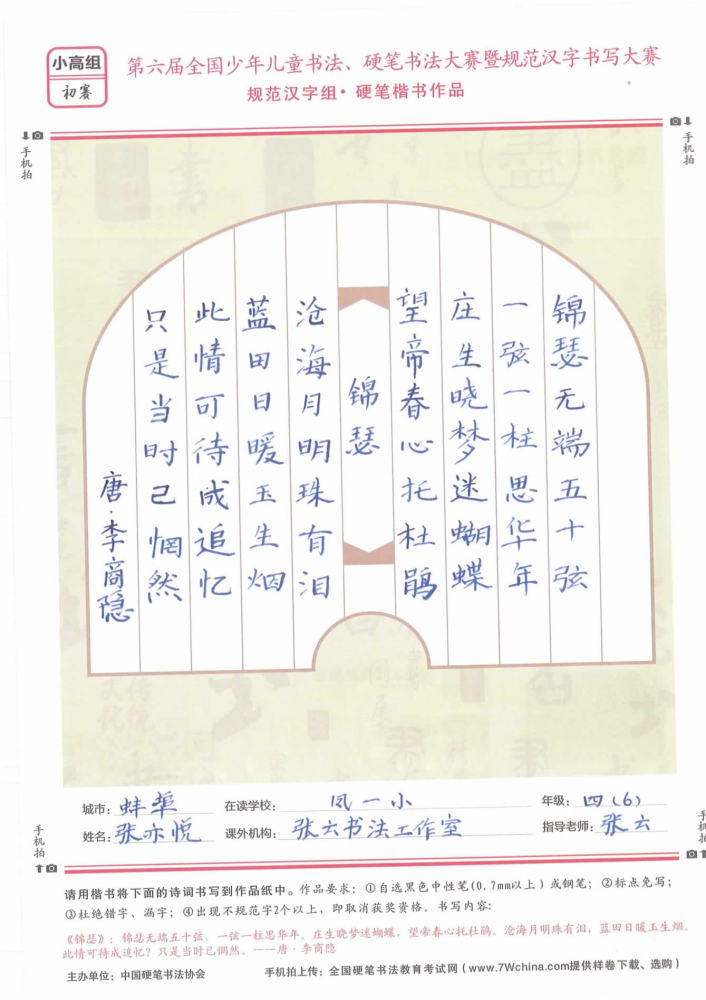 小高组
初赛
第六届全国少年儿童书法、硬笔书法大赛暨规范汉字书写大赛
规范汉字组·硬笔楷书作品
手机拍
手机拍
锦瑟无端五十弦
一弦一柱思华年
庄生晓梦迷蝴蝶
望帝春心托杜鹃
锦瑟
沧海月明珠有泪
蓝田日暖玉生烟
此情可待成追忆
只是当时已惘然
唐·李商隐
城市：蚌埠 在读学校：凤一小 年级：四(6)
姓名：张亦悦 课外机构：张六书法工作室 指导老师：张六
手机拍
手机拍
请用楷书将下面的诗词书写到作品纸中。作品要求：①自选黑色中性笔(0.7mm以上)或钢笔；②标点免写；
③杜绝错字、漏字；④出现不规范字2个以上，即取消获奖资格。书写内容：
《锦瑟》：锦瑟无端五十弦，一弦一柱思华年。庄生晓梦迷蝴蝶，望帝春心托杜鹃。沧海月明珠有泪，蓝田日暖玉生烟。
此情可待成追忆？只是当时已惘然。——唐·李商隐
主办单位：中国硬笔书法协会 手机拍上传：全国硬笔书法教育考试网（www.7Wchina.com提供样卷下载、选购）